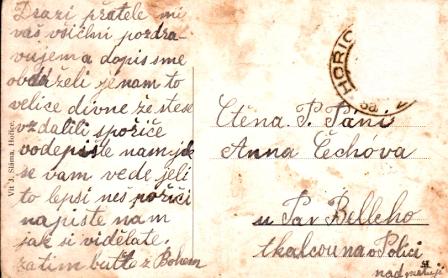 Drazí přatele mi
vaš všichni pozdra-
vujem a dopis sme
ovdrželi je nam to
velice divne že ste se
vzdalili spořiče
vodepište nam jak
se vam vede jeli
to lepší neš pořiči
napište nam
jak si viděláte.
zatim buťto z Bohem
Vít J. Sláma, Hořice.
HOŘIC
Ctěna P. Pani
Anna Čechova
u Pav Belleho
tkalcovna v Polici
nad